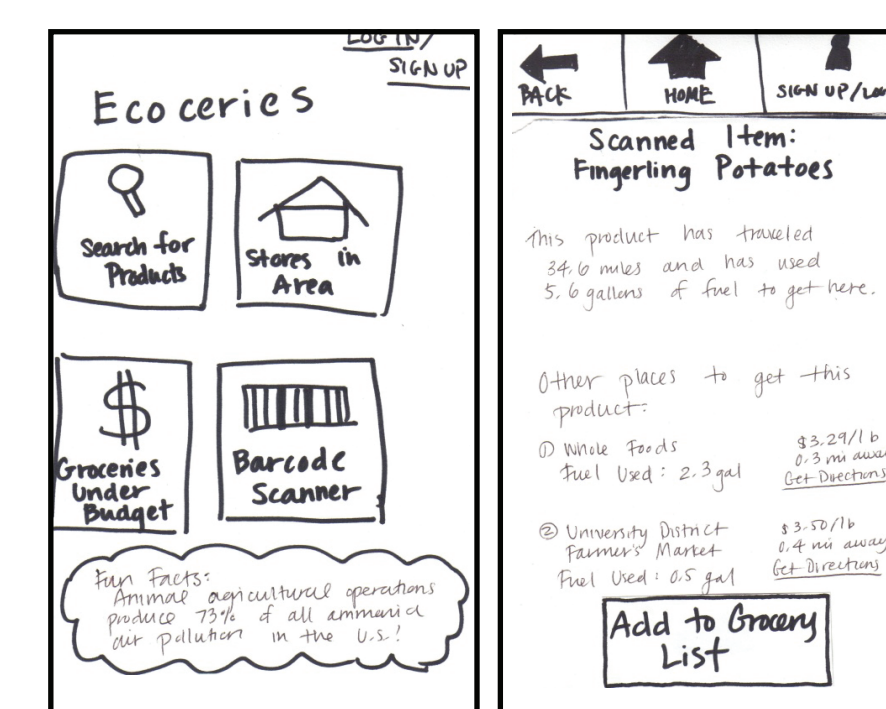 LOG IN/
SIGN UP
Ecoceries
Search for
Products
Stores in
Area
Groceries
Under
Budget
Barcode
Scanner
Fun Facts:
Animal agricultural operations
produce 73% of all ammonia
air pollution in the U.S.!
BACK
HOME
SIGN UP/LO
Scanned Item:
Fingerling Potatoes
This product has traveled
34.6 miles and has used
5.6 gallons of fuel to get here.
Other places to get this
product:
① Whole Foods
Fuel Used: 2.3 gal
$3.29/lb
0.3 mi away
Get Directions
② University District
Farmer's Market
Fuel Used: 0.5 gal
$3.50/lb
0.4 mi away
Get Directions
Add to Grocery
List